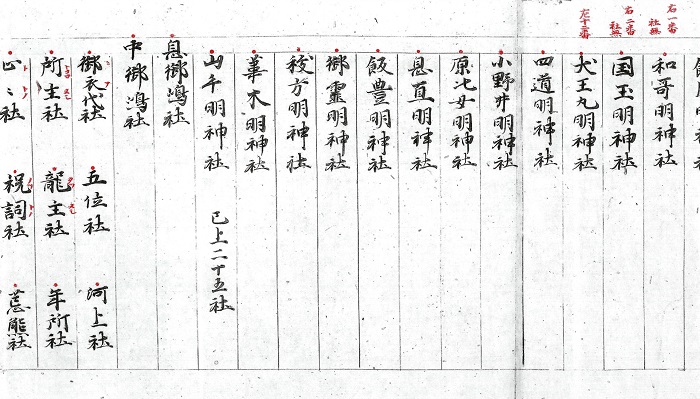 右一番
社無
和哥明神社
右二番
社無
国玉明神社
左十三番
犬王丸明神社
四道明神社
小野井明神社
原七女明神社
息直明神社
飯豊明神社
御霊明神社
明神社
華木明神社
山千明神社 已上二十五社
息御嶋社
中御嶋社
御衣代社 五位社 河上社
所主社 龍主社 年所社
祝詞社 荒熊社